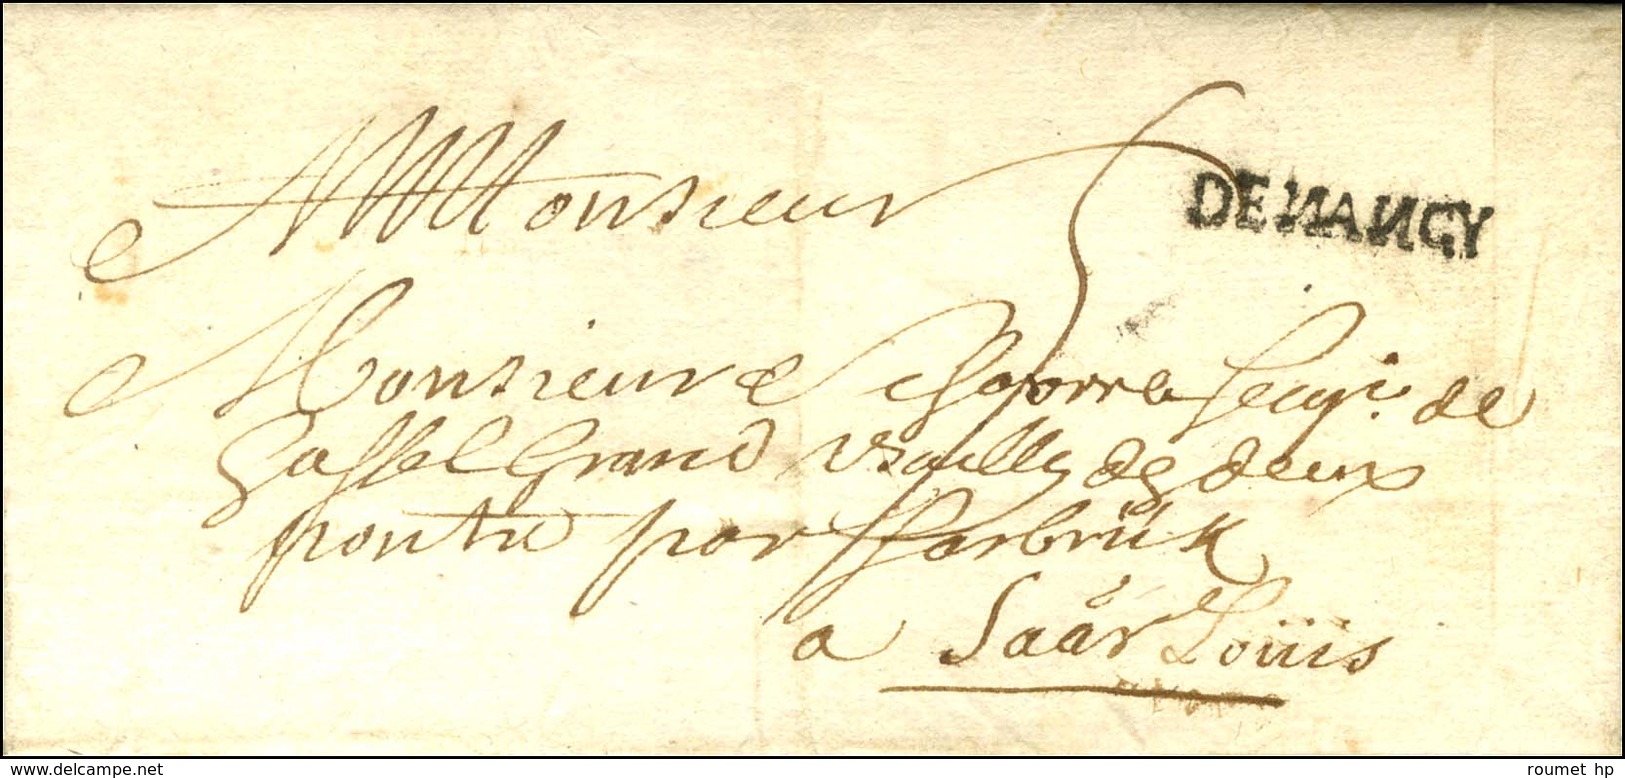 A Monsieur
5
DE NANCY
Monsieur de de
Cassel Grand Bailly de deux
pontu par Sarbrük
a Saar Loüis
www.delcampe.net
roumet hp